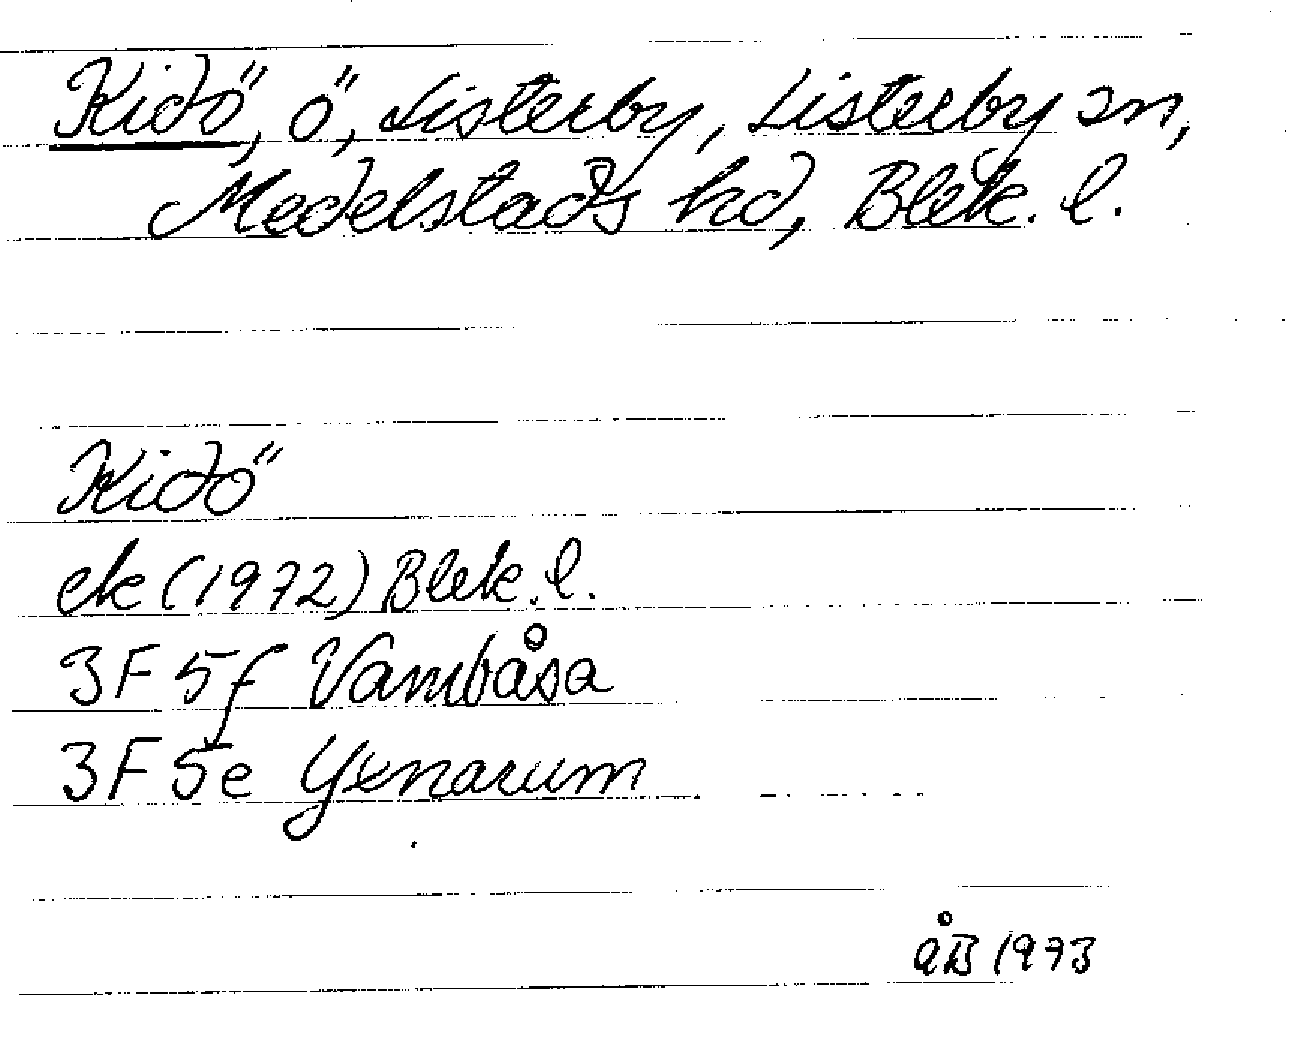 Kidö, ö, Listerby, Listerby sn,
Medelstads hd, Blek. l.
Kidö
ek (1972) Blek. l.
3F 5f Vambåsa
3F 5e Yxnarum
åB 1973